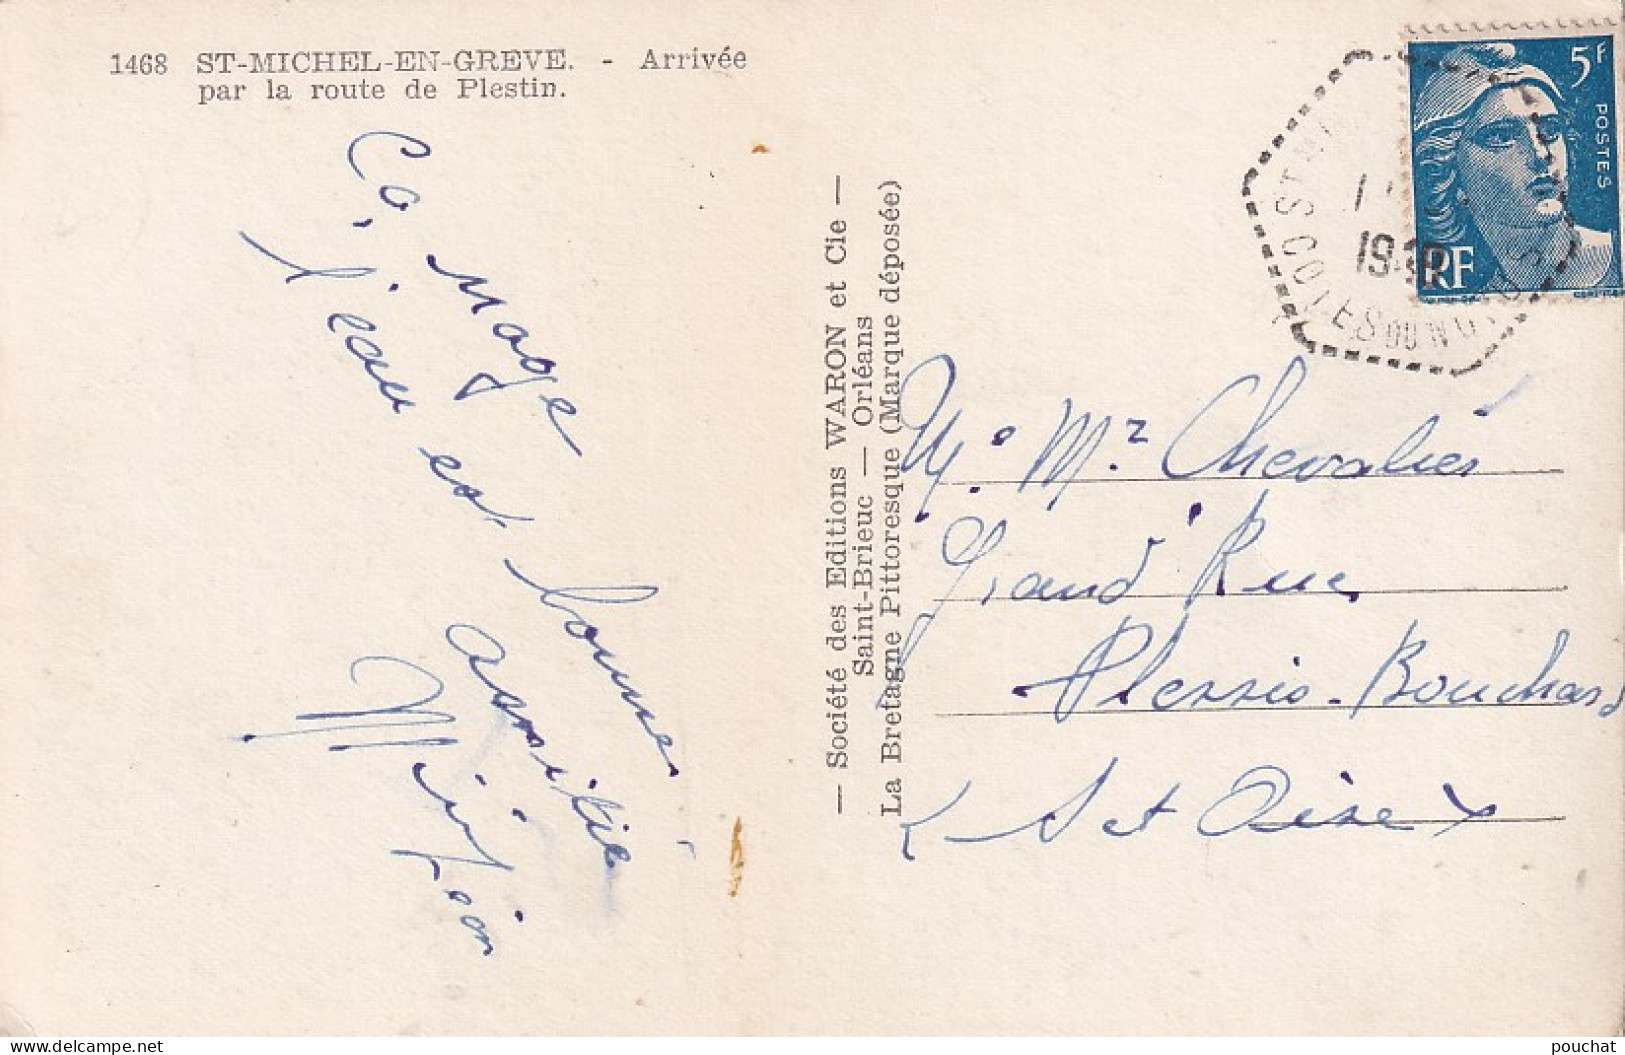 1468 ST-MICHEL-EN-GREVE. - Arrivée
par la route de Plestin.
Ca, nage
l'eau est bonne
amitié
— Société des Editions WARON et Cie —
Saint-Brieuc — Orléans
La Bretagne Pittoresque (Marque déposée)
5F
POSTES
RF
COTES DU NORD
M. Mr Chevalier
Grand Rue
Plessis-Bouchard
S et Oise
pouchat